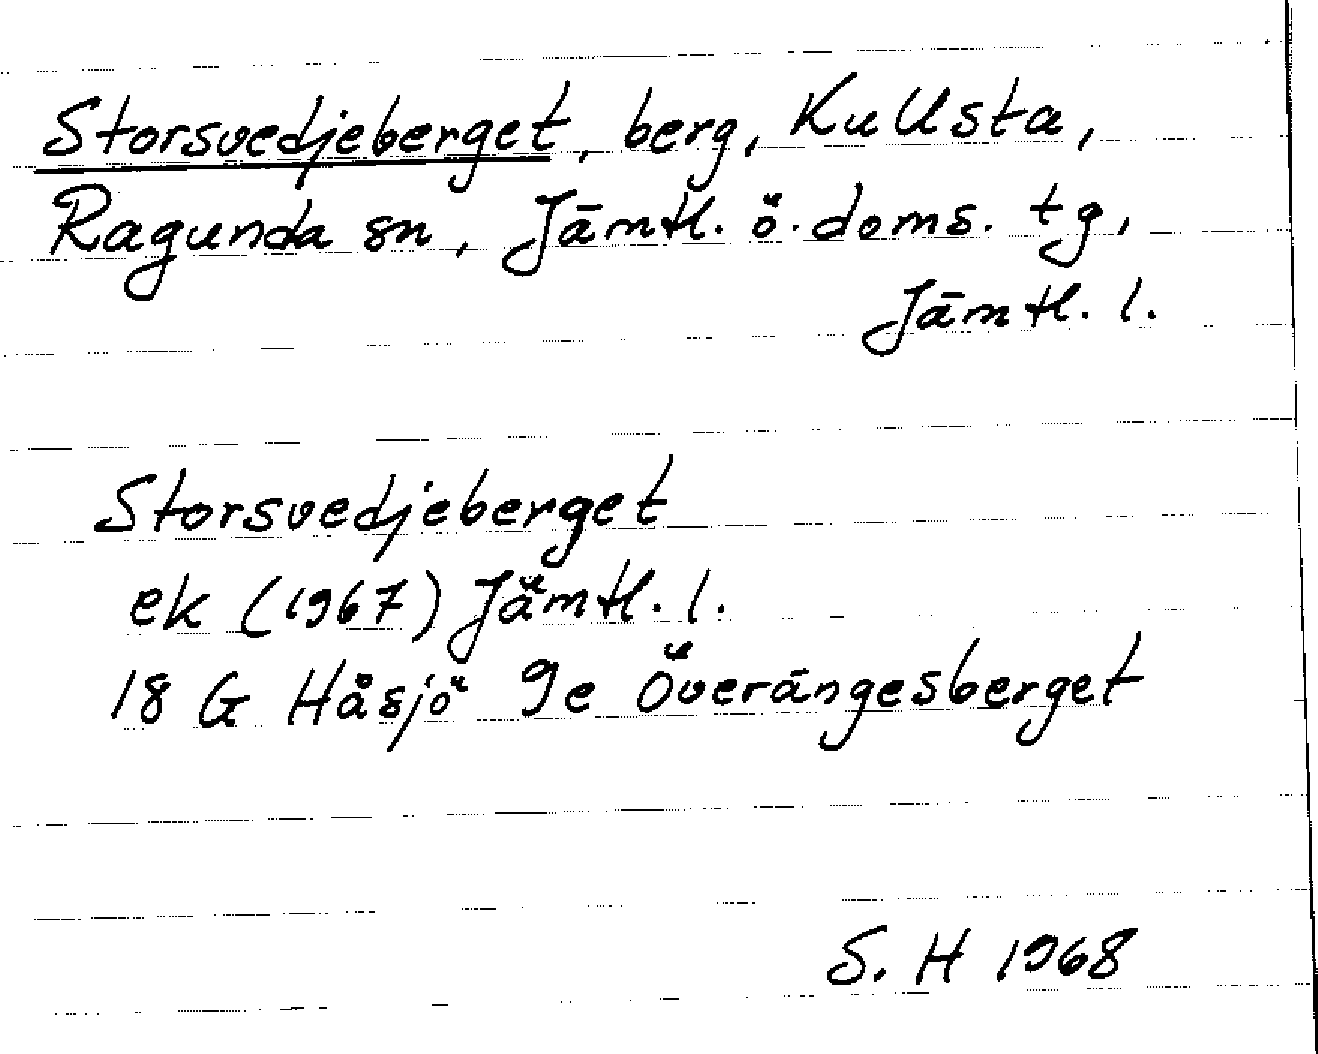 Storsvedjeberget, berg, Kullsta,
Ragunda sn, Jämtl. ö. doms. tg,
Jämtl. l.
Storsvedjeberget
ek (1967) Jämtl. l.
18 G Håsjö 9e Överängesberget
S. H 1968